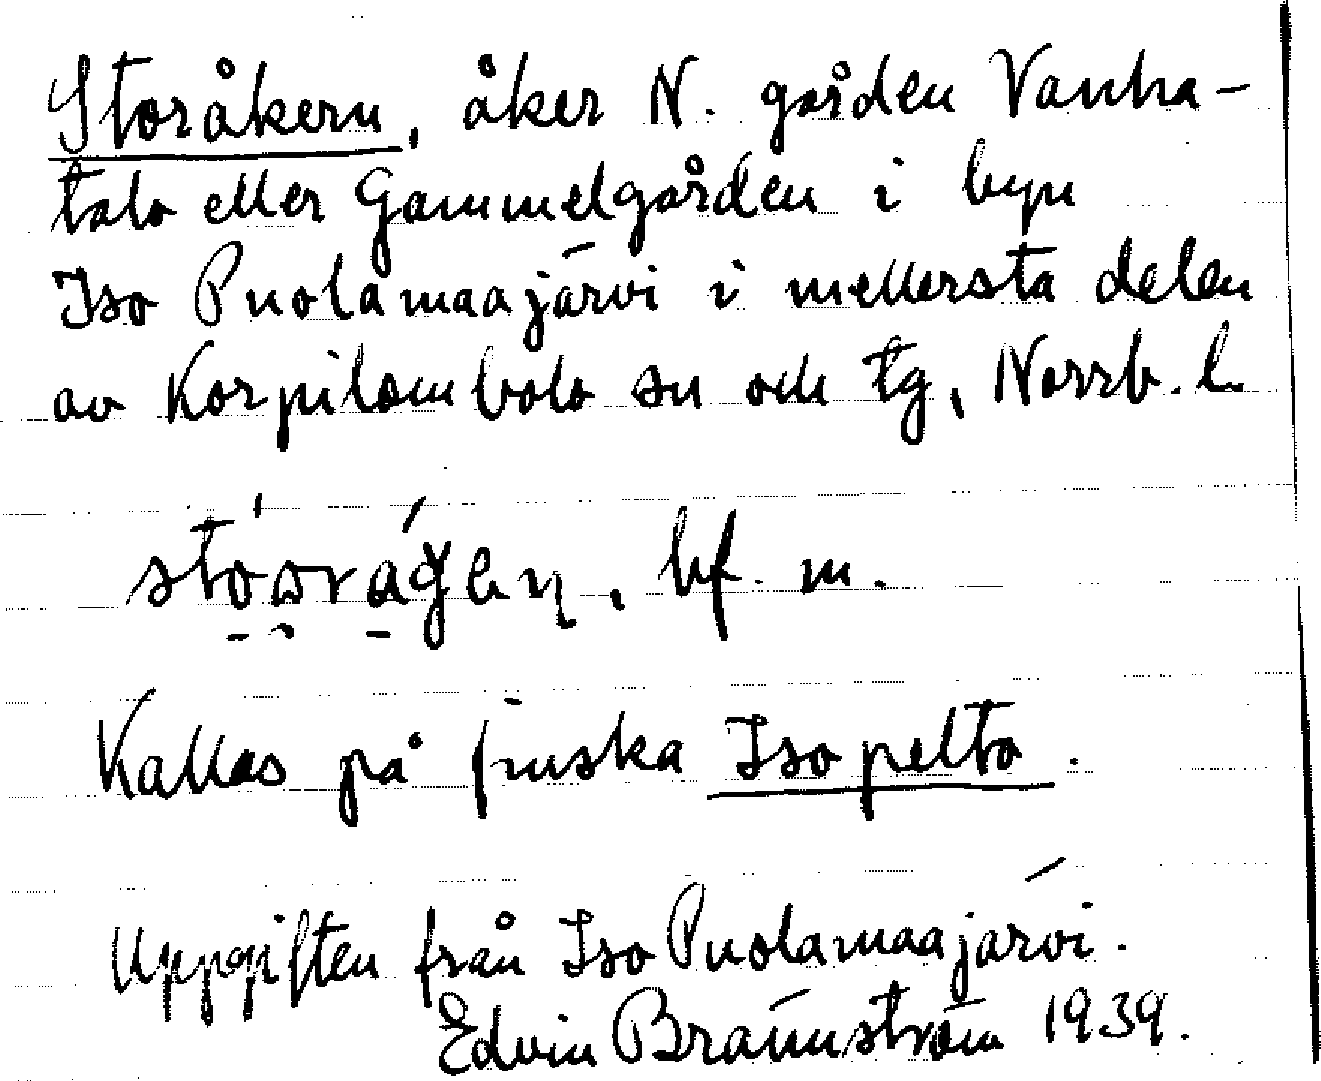 Storåkern, åker N. gården Vanha-
talo eller Gammelgården i byn
Iso Puolamaajärvi i mellersta delen
av Korpilombolo sn och tg, Norrb. l.
bf. m.
Kallas på finska Iso pelto.
Uppgiften från Iso Puolamaajärvi.
Edvin Brännström 1939.